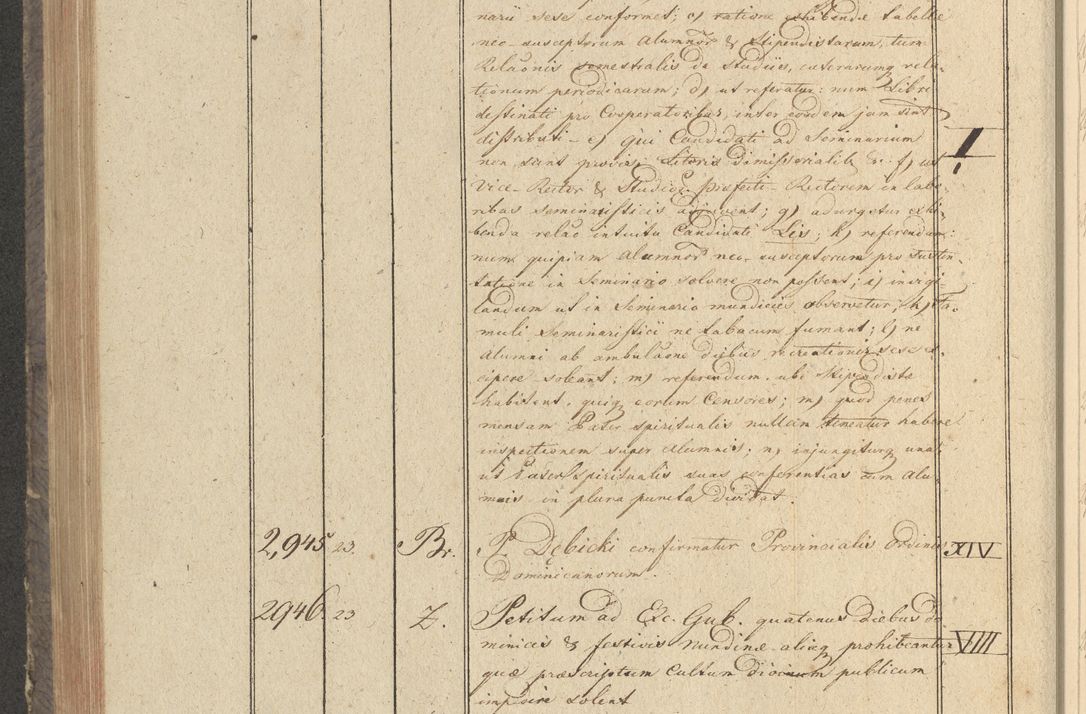 narii sese conformet; c) ratione exhibendæ tabellæ
neo-susceptorum Alumnor & Stipendistarum, tum
Relaonis semestralis de Studiis, cæterarumq rela-
tionum periodicarum; d) ut referatur: num Libri
destinati pro Cooperatoribus, inter eosdem jam sint
distributi - e) qui Candidati ad Seminarium
non sunt provisi Literis dimissorialib &c. f) ut
Vice-Rector & Studior. Præfecti - Rectorem in labo-
ribus seminaristicis adjuvent; g) adurgetur exhi-
benda relao intuitu Candidati Lis; h) referendum:
num quipiam Alumnor neo-susceptorum pro susten-
tatione in Seminario solvere non possent; i) invigi-
landum ut in Seminario mundicies observetur; k) fa-
muli Seminaristici ne tabacum fumant; l) ne
Alumni ab ambulaone diebus recreationis sese ex-
cipere soleant; m) referendum. ubi Stipendistæ
habitent, quiq eorum Censores; m) quod penes
mensam Pater spiritualis nullam teneatur habere
inspectionem super Alumnis; n) injungiturq una
ut Pater Spiritualis suas conferentias cum Alu-
mnis in plura puncta dividat.
I
2,945 23. Br. P. Dębicki confirmatur Provincialis Ordinis XIV
Dominicanorum.
2946. 23 Z. Petitum ad Exc. Gub. quatenus diebus do-
minicis & festivis nundinæ aliæq prohibeantur VIII
quæ præscriptum Cultum divinum publicum
impedire solent